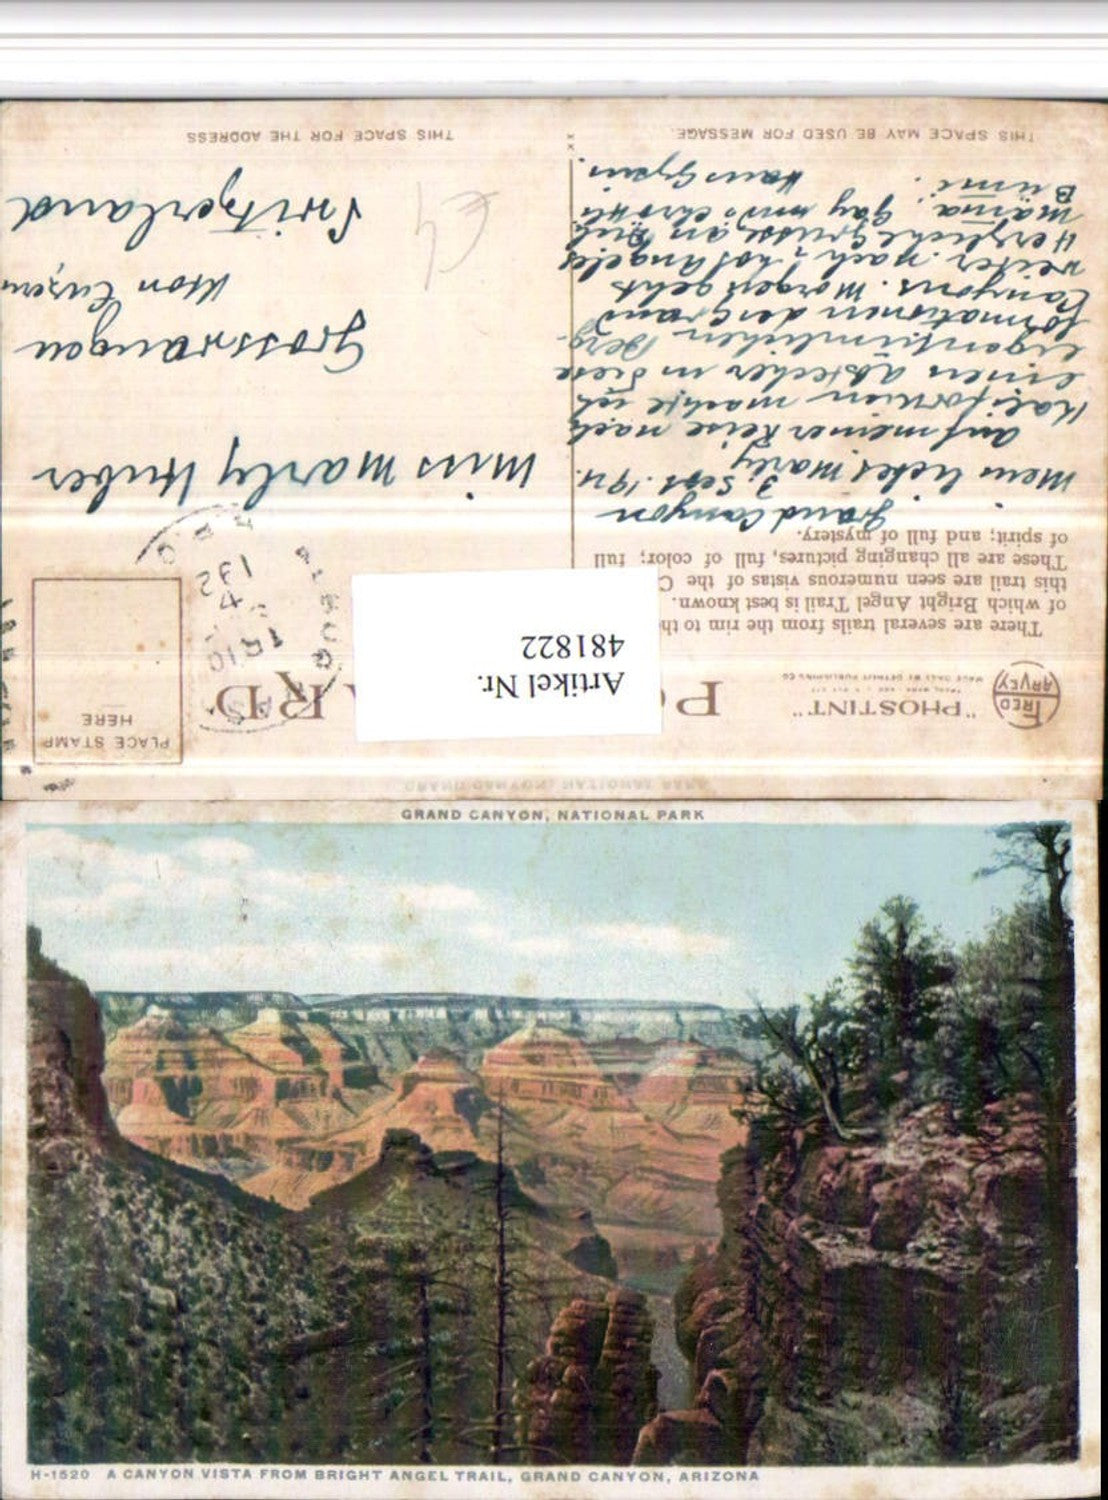 THIS SPACE MAY BE USED FOR MESSAGE.
THIS SPACE FOR THE ADDRESS
FRED HARVEY
"PHOSTINT"
MADE ONLY BY DETROIT PUBLISHING CO.
PO
ARD
PLACE STAMP
HERE
Artikel Nr.
481822
There are several trails from the rim to the
of which Bright Angel Trail is best known.
this trail are seen numerous vistas of the C
These are all changing pictures, full of color; full
of spirit; and full of mystery.
Grand Canyon
3. Sept. 1924.
Mein liebes Marly
Auf meiner Reise nach
Kalifornien mache ich
einen Abstecher in diese
eigentümlichen Berg-
formationen des Grand
Canyons. Morgen geht's
weiter nach Los Angeles
Herzliche Grüsse an Dich
Mama, Gay und
Hans Gysin
Miss Marly Huber
Grosswangen
Kton Luzern
Switzerland
GRAND CANYON, NATIONAL PARK
H-1520 A CANYON VISTA FROM BRIGHT ANGEL TRAIL, GRAND CANYON, ARIZONA